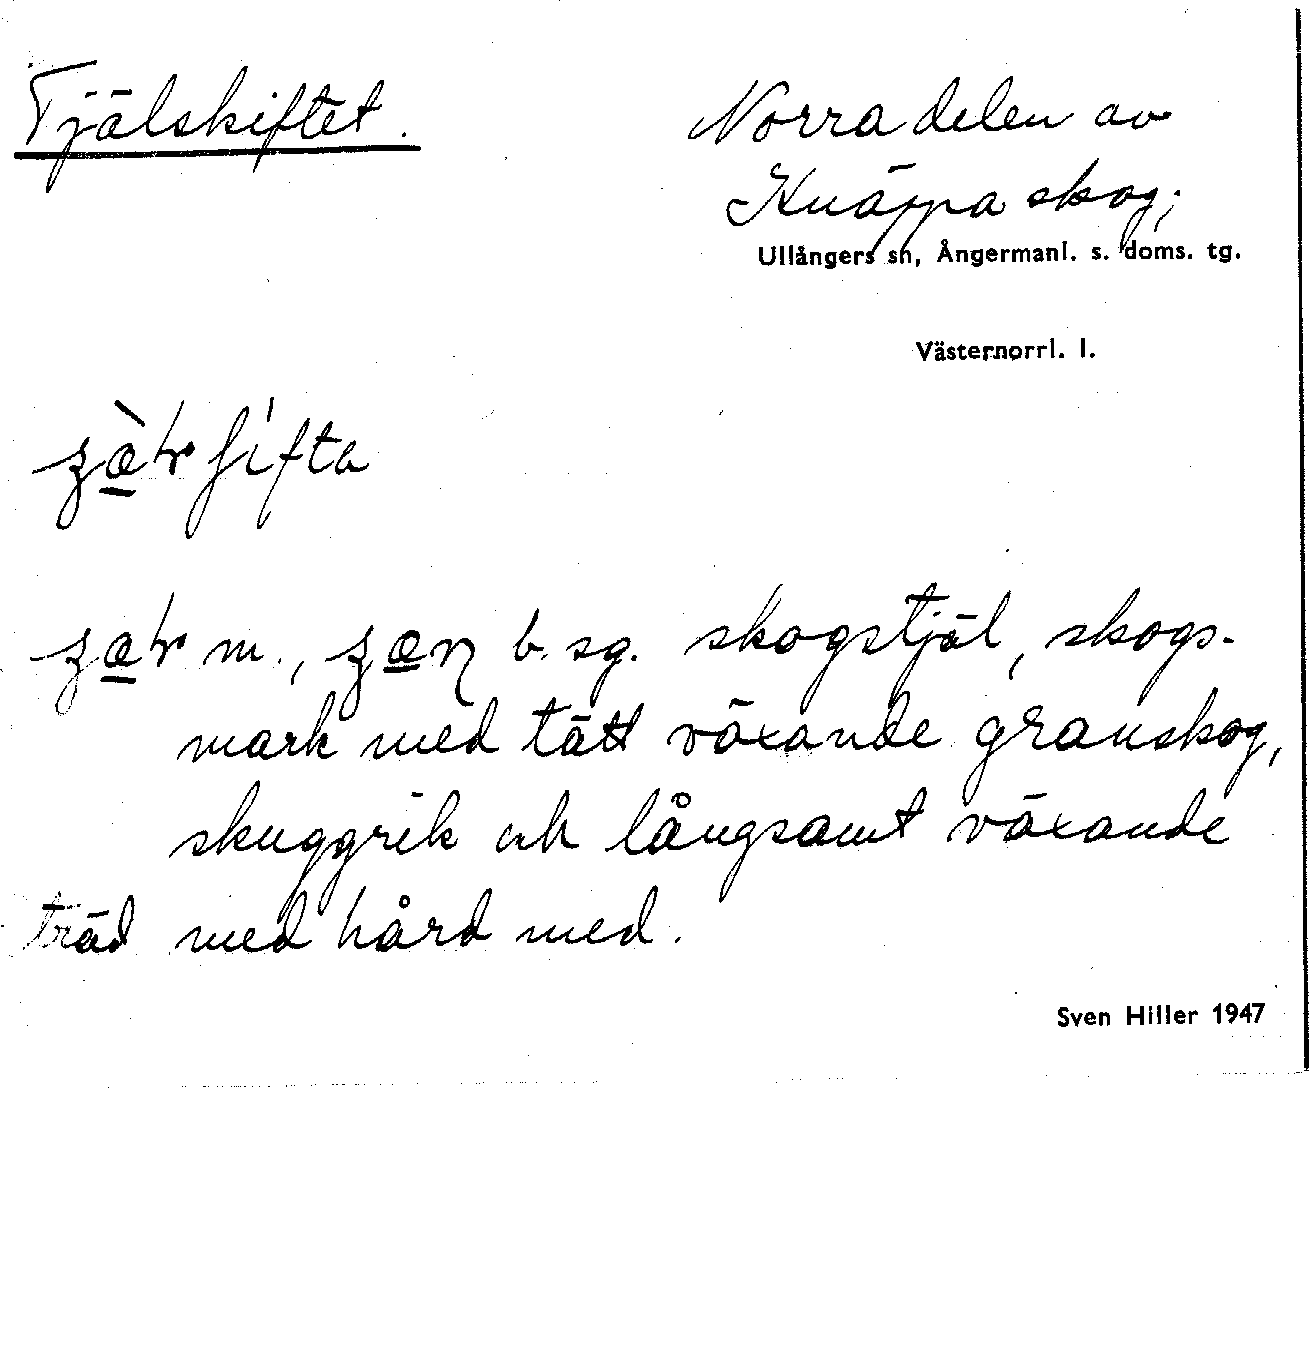 Tjälskiftet.
Norra delen av
Knäppa skog;
Ullångers sn, Ångermanl. s. doms. tg.
Västernorrl. l.
m., b. sg. skogstjäl, skogs-
mark med tätt växande granskog,
skuggrik och långsamt växande
träd med hård med.
Sven Hiller 1947